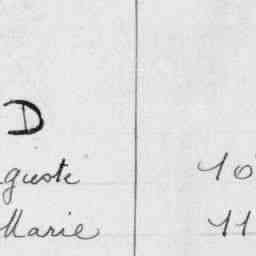 D
guste 10
Marie 11